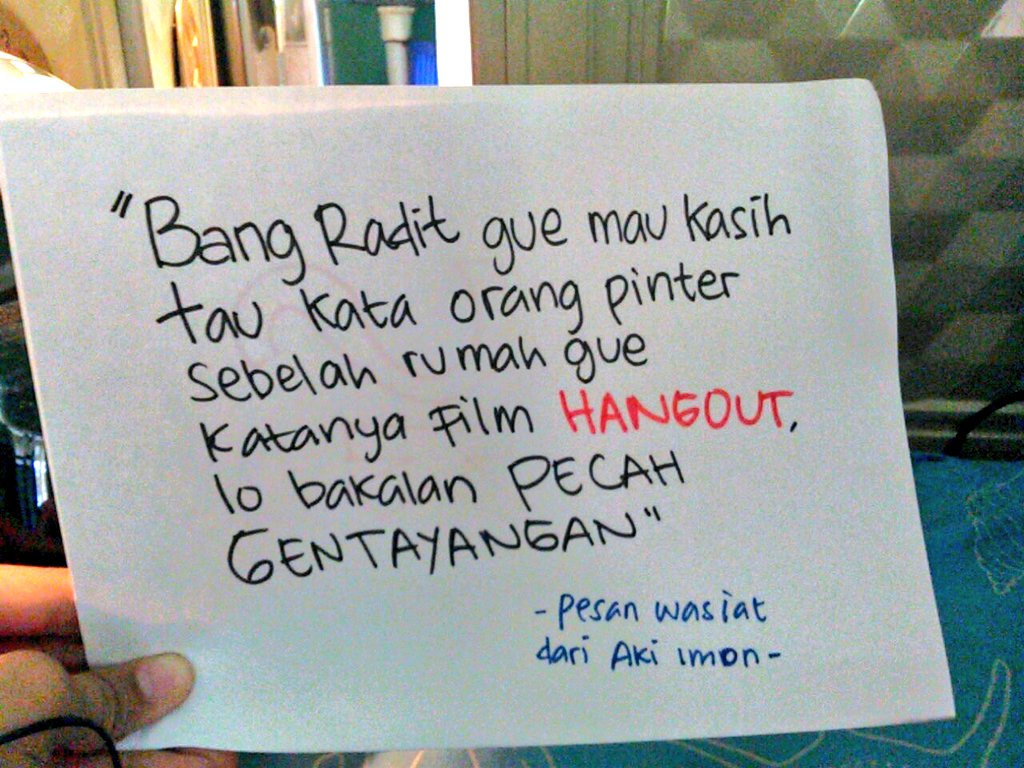 "Bang Radit gue mau kasih
tau kata orang pinter
sebelah rumah gue
katanya Film HANGOUT,
lo bakalan PECAH
GENTAYANGAN"
- pesan wasiat
dari Aki imon -